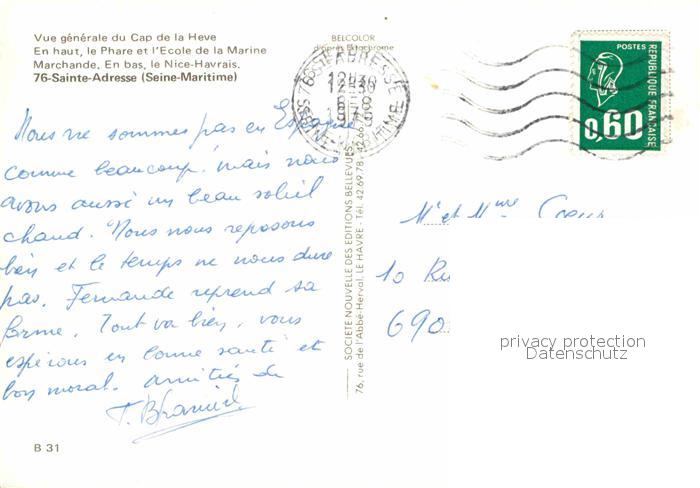 Vue générale du Cap de la Heve
En haut, le Phare et l'Ecole de la Marine
Marchande. En bas, le Nice-Havrais.
76-Sainte-Adresse (Seine-Maritime)
BELCOLOR
d'après Ektachrome
12H30
8-8
POSTES
REPUBLIQUE FRANÇAISE
0,60
Nous ne sommes pas en Espagne
comme beaucoup. mais nous
avons aussi un beau soleil
chaud. Nous nous reposons
bien et le temps ne nous dure
pas. Fernande reprend sa
forme. Tout va bien, vous
espérons en bonne santé et
bon moral. amitiés de
SOCIETE NOUVELLE DES EDITIONS BELLEVUES
76, rue de l'Abbé-Herval, LE HAVRE - Tél. 42.69.78
Mr et Mme
10 Ru
690
privacy protection
Datenschutz
B 31